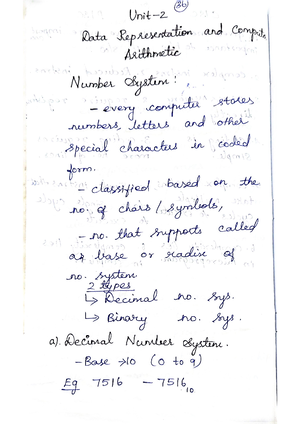 (36)
Unit-2
Data Representation and Computer
Arithmetic
Number System:
- every computer stores
numbers, letters and other
special characters in coded
form.
- classified based on the
no. of chars / symbols,
- no. that supports called
as base or radix of
no. system.
2 types
↳ Decimal no. sys.
↳ Binary no. sys.
a). Decimal Number System.
- Base → 10 (0 to 9)
Eg 7516 - 7516₁₀